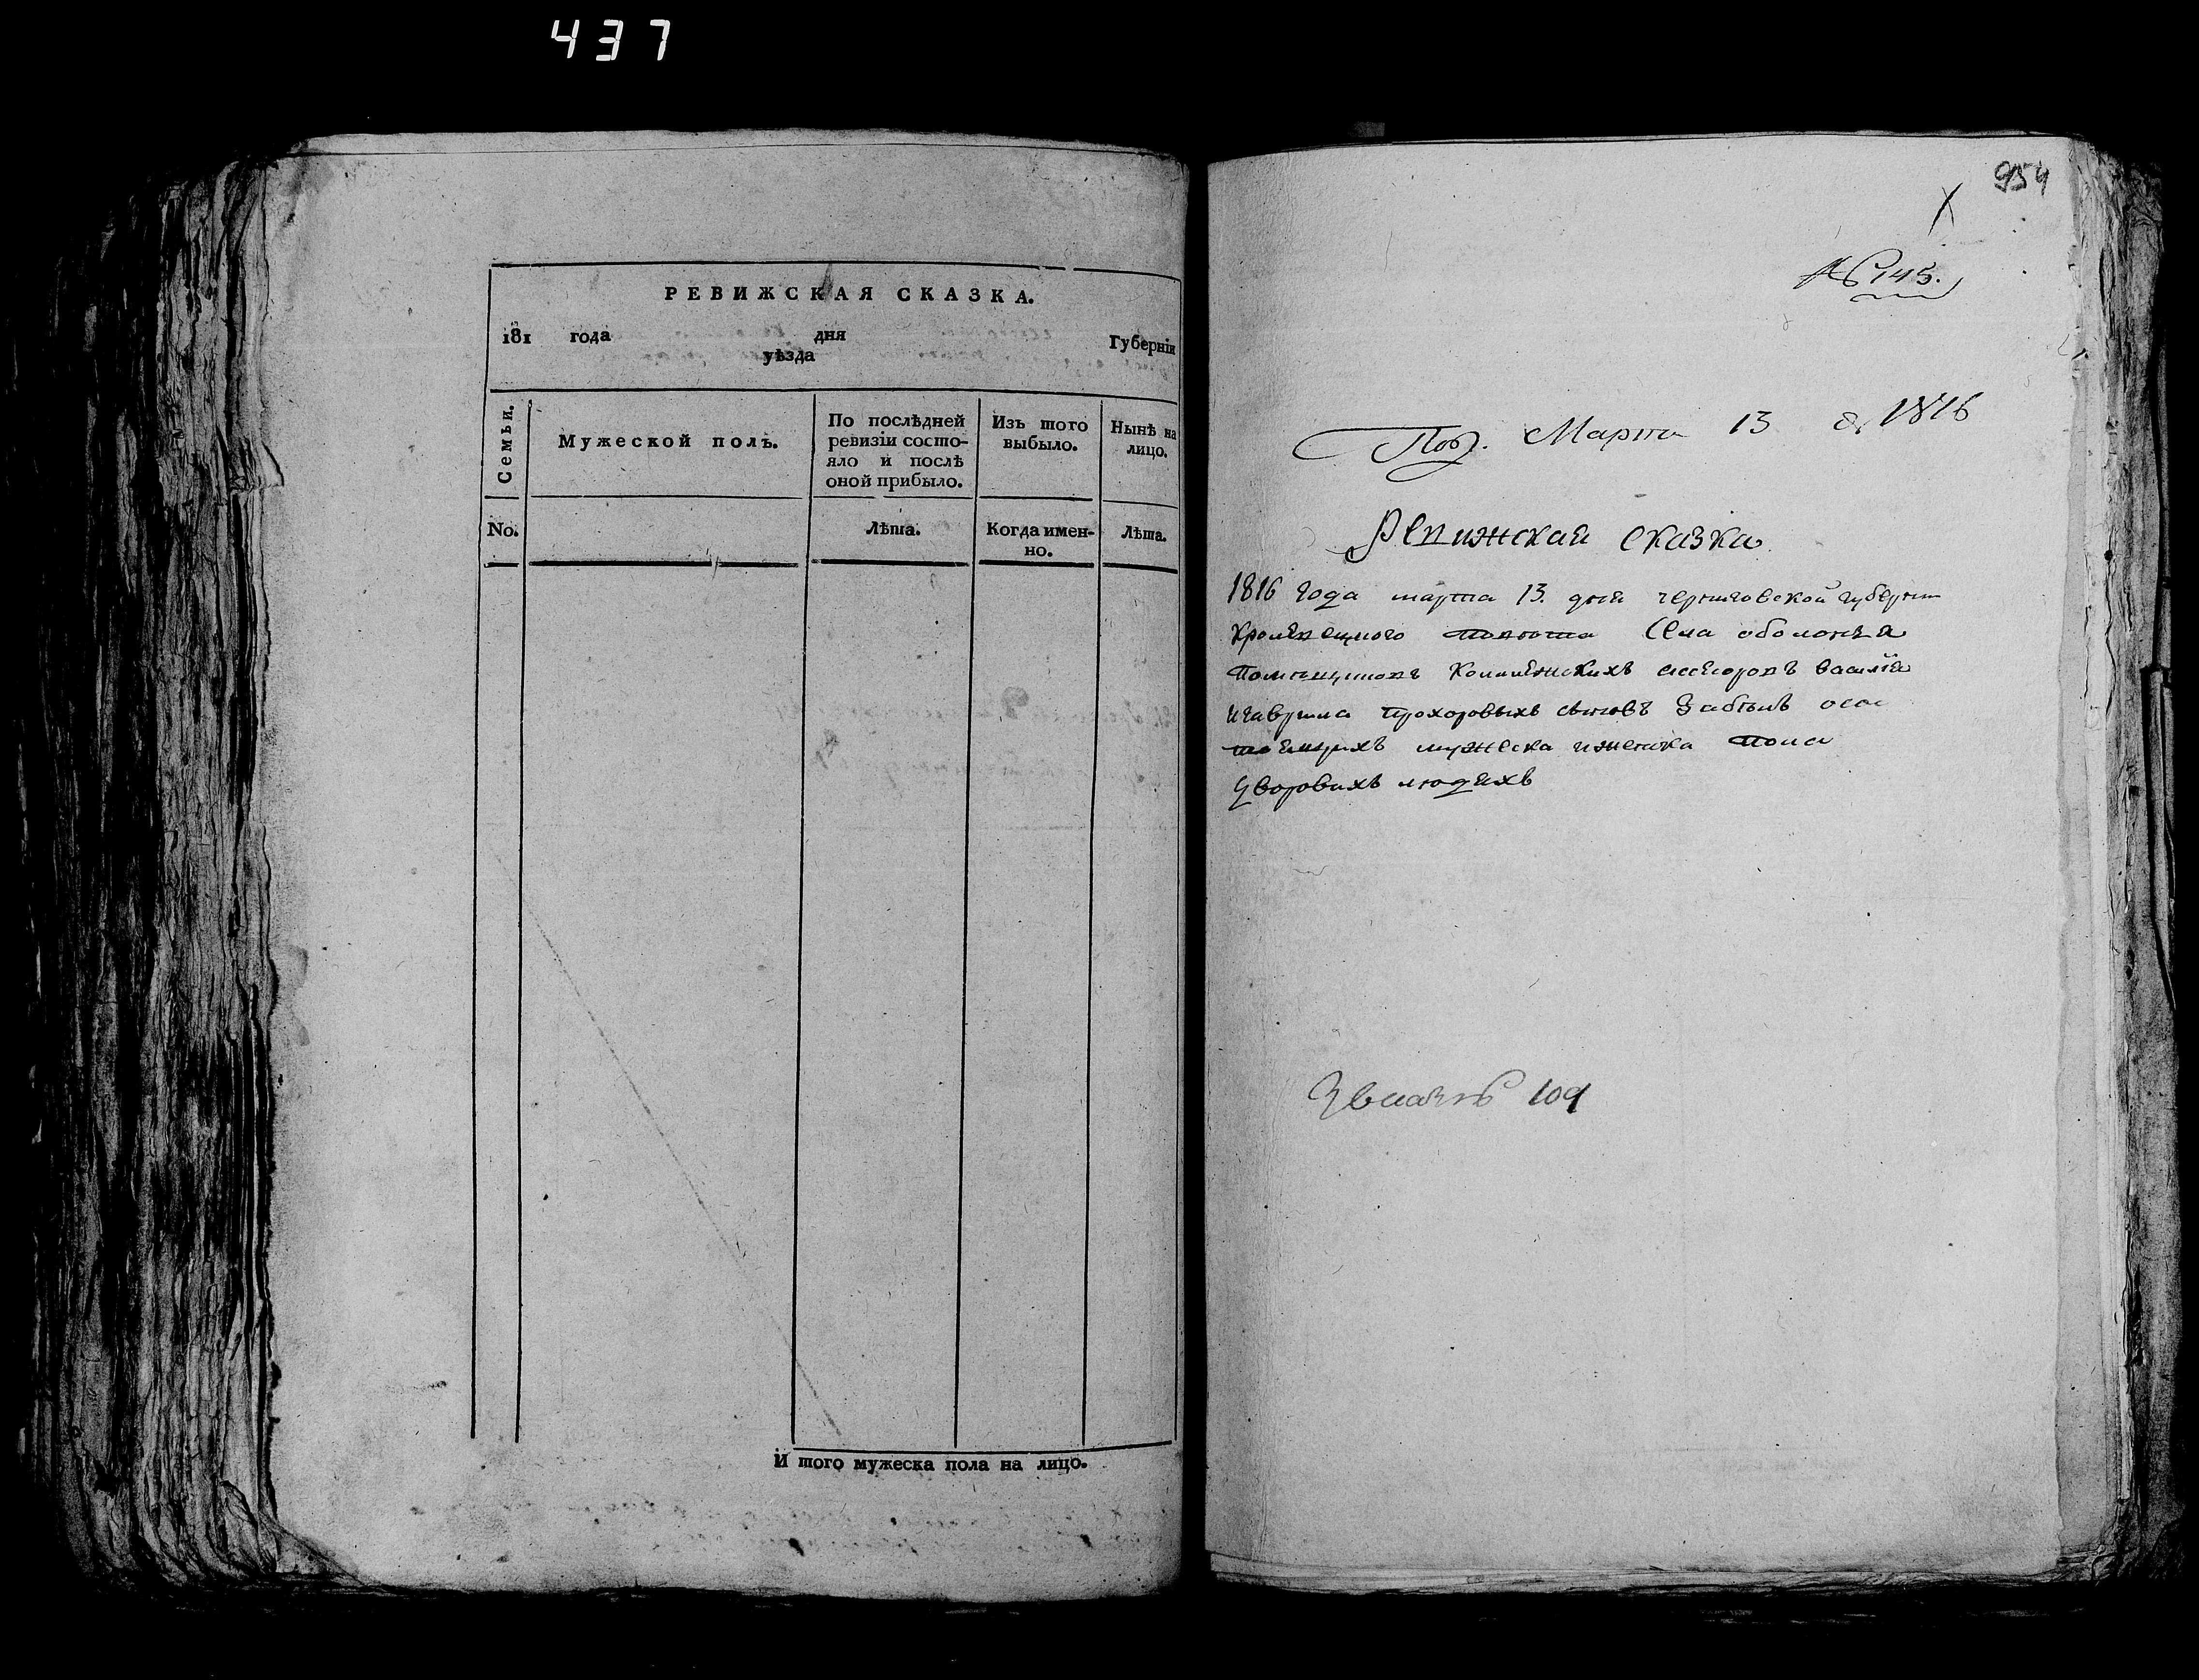 437
РЕВИЖСКАЯ СКАЗКА.
181 года дня Губерніи
уѣзда
Семьи.
Мужеской полъ.
По послѣдней ревизіи состо-
яло и послѣ
оной прибыло.
Изъ того
выбыло.
Нынѣ на
лицо.
No.
Лѣта.
Когда имен-
но.
Лѣта.
И того мужеска пола на лицо.
954
№ 145.
Под. Марта 13 д. 1816
Ревижская сказка
1816 года марта 13. дня черниговской губернии
Кролевецкого повѣта Села оболонья
Помещиковъ Колежскихъ асесоровъ василія
игаврила Прохоровыхъ синовъ Забѣлъ осос
тоящихъ мужеска иженска пола
дворовихъ людяхъ
109